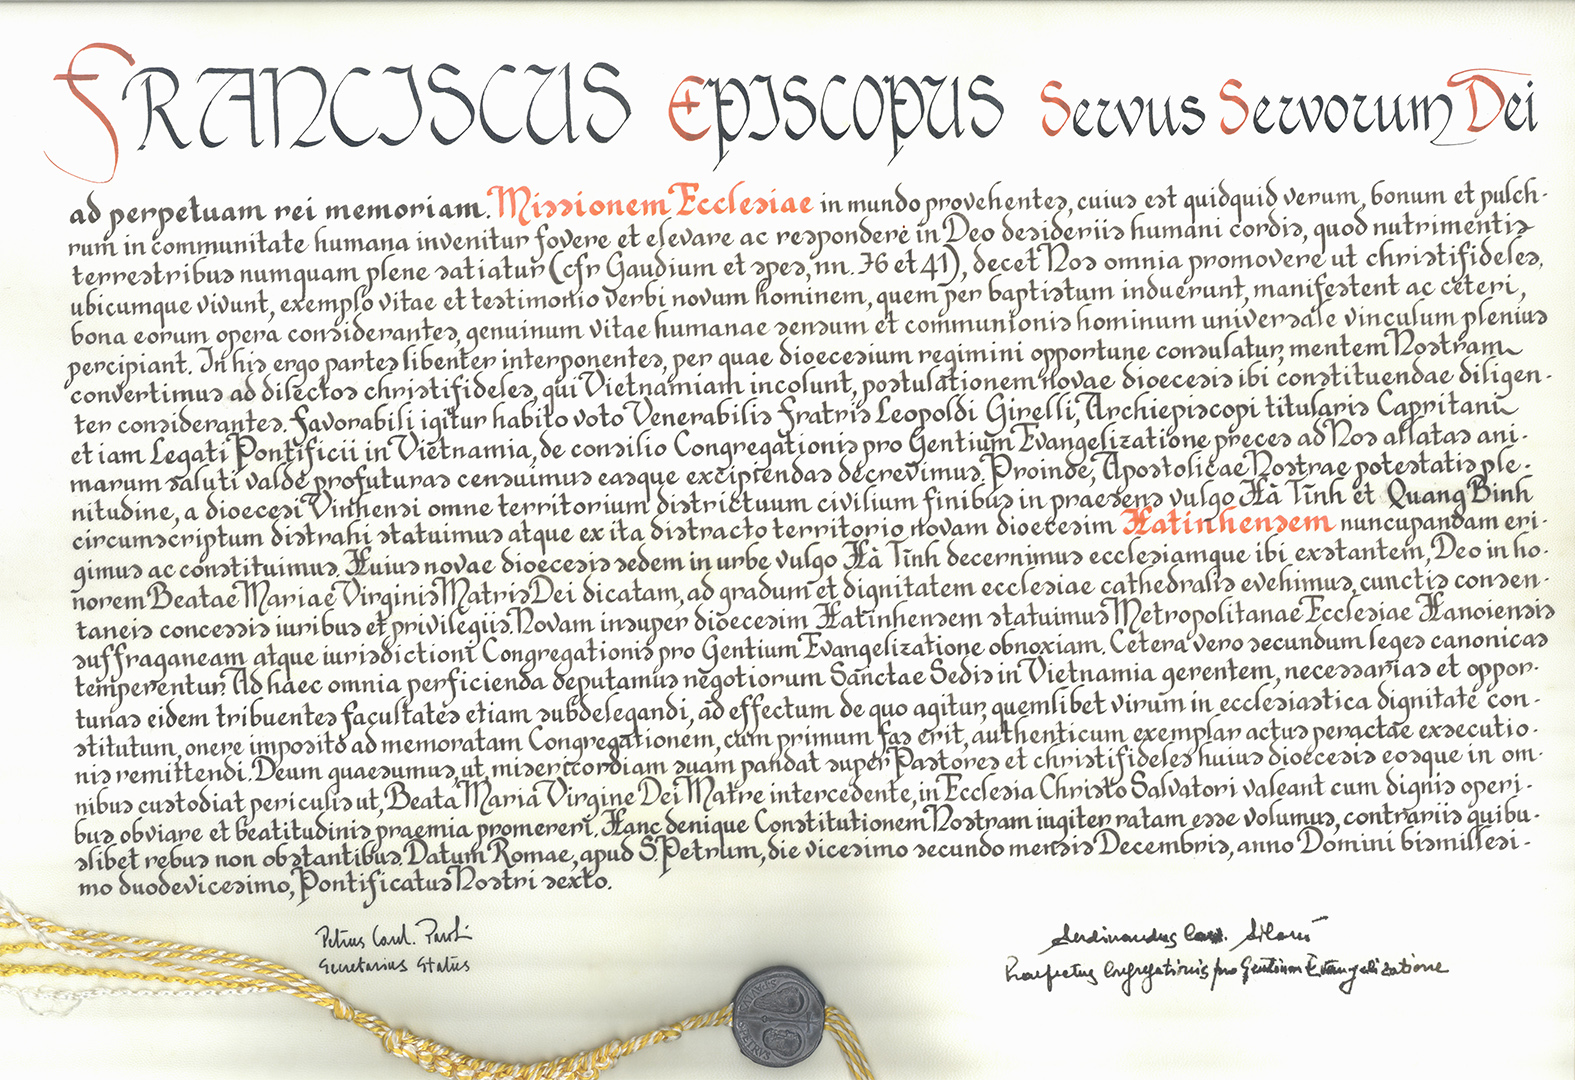 FRANCISCUS EPISCOPUS Servus Servorum Dei
ad perpetuam rei memoriam. Missionem Ecclesiae in mundo provehentes, cuius est quidquid verum, bonum et pulch-
rum in communitate humana invenitur fovere et elevare ac respondere in Deo desideriis humani cordis, quod nutrimentis
terrestribus numquam plene satiatur (cfr Gaudium et spes, nn. 76 et 41), decet Nos omnia promovere ut christifideles,
ubicumque vivunt, exemplo vitae et testimonio verbi novum hominem, quem per baptistum induerunt, manifestent ac ceteri,
bona eorum opera considerantes, genuinum vitae humanae sensum et communionis hominum universale vinculum plenius
percipiant. In his ergo partes libenter interponentes, per quae dioecesium regimini opportune consulatur, mentem Nostram
convertimus ad dilectos christifideles, qui Vietnamiam incolunt, postulationem novae dioecesis ibi constituendae diligen-
ter considerantes. Favorabili igitur habito voto Venerabilis Fratris Leopoldi Girelli, Archiepiscopi titularis Capritani
et iam Legati Pontificii in Vietnamia, de consilio Congregationis pro Gentium Evangelizatione preces ad Nos allatas ani-
marum saluti valde profuturas censuimus easque excipiendas decrevimus. Proinde, Apostolicae Nostrae potestatis ple-
nitudine, a dioecesi Vinhensi omne territorium districtuum civilium finibus in praesens vulgo Hà Tĩnh et Quang Binh
circumscriptum distrahi statuimus atque ex ita distracto territorio novam dioecesim Hatinhensem nuncupandam eri-
gimus ac constituimus. Huius novae dioecesis sedem in urbe vulgo Hà Tĩnh decernimus ecclesiamque ibi exstantem, Deo in ho-
norem Beatae Mariae Virginis Matris Dei dicatam, ad gradum et dignitatem ecclesiae cathedralis evehimus, cunctis consen-
taneis concessis iuribus et privilegiis. Novam insuper dioecesim Hatinhensem statuimus Metropolitanae Ecclesiae Hanoiensis
suffraganeam atque iurisdictioni Congregationis pro Gentium Evangelizatione obnoxiam. Cetera vero secundum leges canonicas
temperentur. Ad haec omnia perficienda deputamus negotiorum Sanctae Sedis in Vietnamia gerentem, necessarias et oppor-
tunas eidem tribuentes facultates etiam subdelegandi, ad effectum de quo agitur, quemlibet virum in ecclesiastica dignitate con-
stitutum, onere imposito ad memoratam Congregationem, cum primum fas erit, authenticum exemplar actus peractae exsecutio-
nis remittendi. Deum quaesumus, ut misericordiam suam pandat super Pastores et christifideles huius dioecesis eosque in om-
nibus custodiat periculis ut, Beata Maria Virgine Dei Matre intercedente, in Ecclesia Christo Salvatori valeant cum dignis operi-
bus obviare et beatitudinis praemia promereri. Hanc denique Constitutionem Nostram iugiter ratam esse volumus, contrariis quibu-
slibet rebus non obstantibus. Datum Romae, apud S. Petrum, die vicesimo secundo mensis Decembris, anno Domini bismillesi-
mo duodevicesimo, Pontificatus Nostri sexto.
Petrus Card. Parolin
Secretarius Status
Ferdinandus Car. Filoni
Praefectus Congregationis pro Gentium Evangelizatione